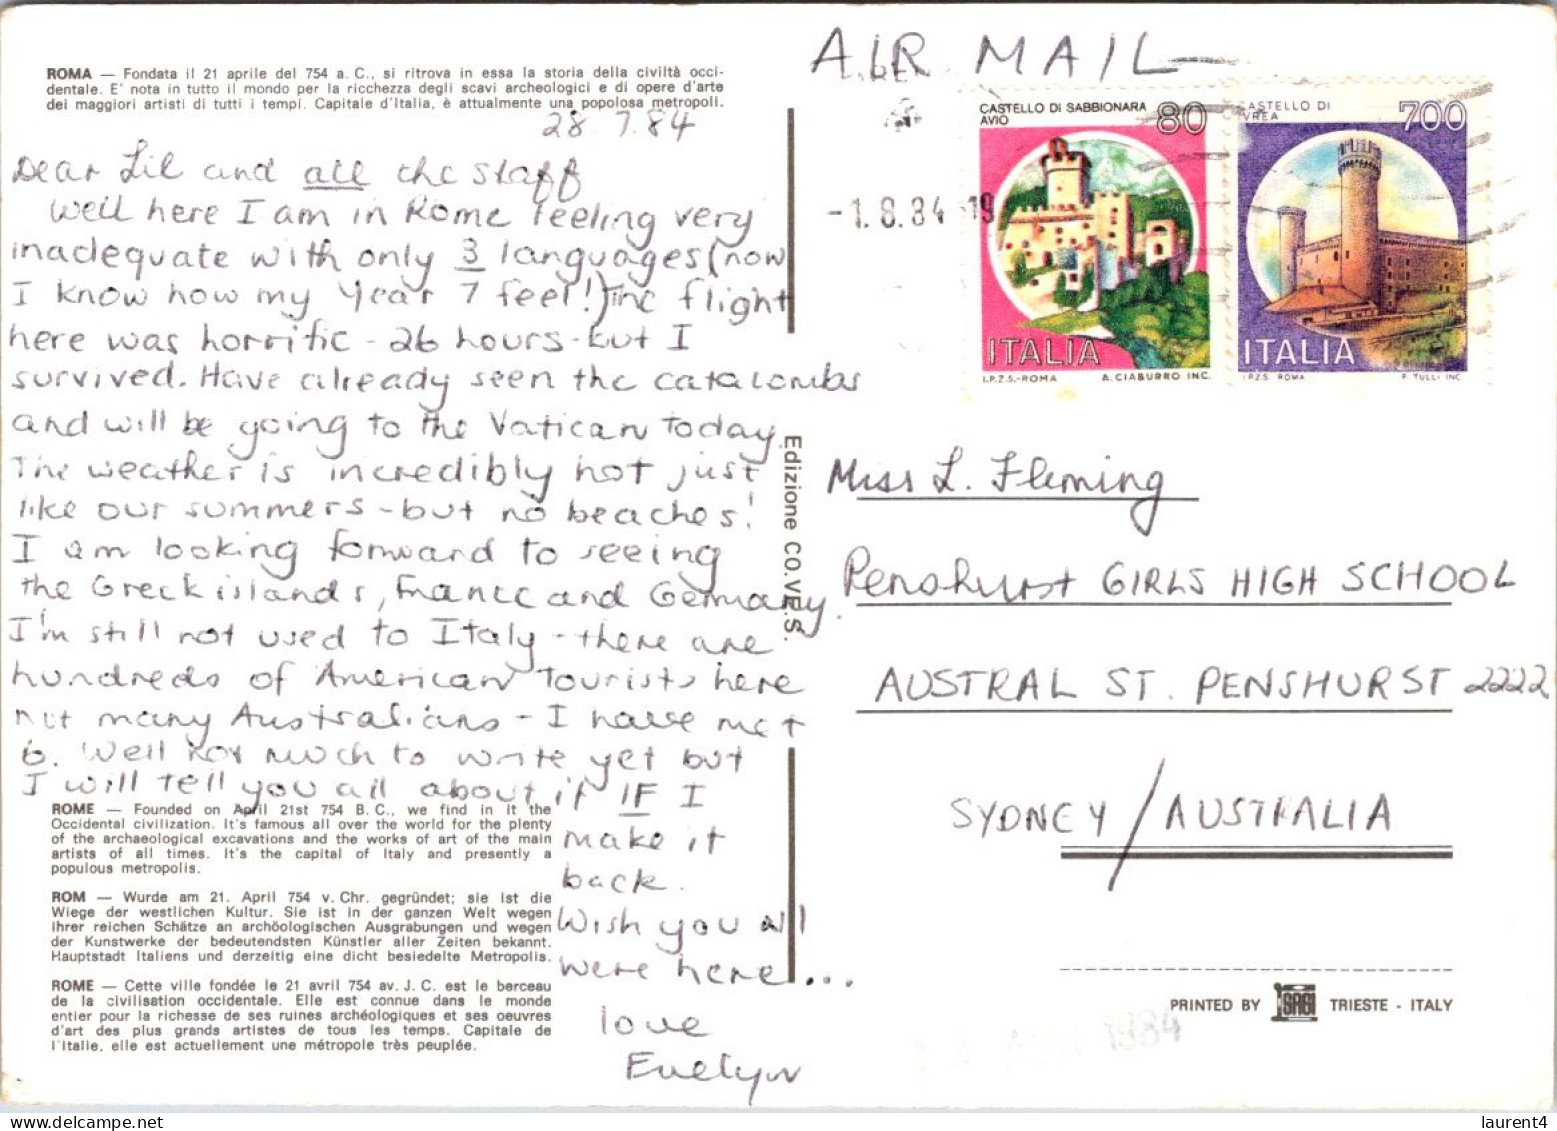 ROMA — Fondata il 21 aprile del 754 a. C., si ritrova in essa la storia della civiltà occi-
dentale. E' nota in tutto il mondo per la ricchezza degli scavi archeologici e di opere d'arte
dei maggiori artisti di tutti i tempi. Capitale d'Italia, è attualmente una popolosa metropoli.
28.7.84
Dear Lil and all the staff
Well here I am in Rome feeling very
inadequate with only 3 languages (now
I know how my Year 7 feel!) The flight
here was horrific - 26 hours - but I
survived. Have already seen the catacombs
and will be going to the Vatican today.
The weather is incredibly hot just
like our summers - but no beaches!
I am looking forward to seeing
the Greek islands, France and Germany.
I'm still not used to Italy - there are
hundreds of American tourists here
not many Australians - I have met
6. Well not much to write yet but
I will tell you all about it IF I
make it
back.
Wish you all
were here...
love
Evelyn
ROME — Founded on April 21st 754 B. C., we find in it the
Occidental civilization. It's famous all over the world for the plenty
of the archaeological excavations and the works of art of the main
artists of all times. It's the capital of Italy and presently a
populous metropolis.
ROM — Wurde am 21. April 754 v. Chr. gegründet; sie ist die
Wiege der westlichen Kultur. Sie ist in der ganzen Welt wegen
ihrer reichen Schätze an archöologischen Ausgrabungen und wegen
der Kunstwerke der bedeutendsten Künstler aller Zeiten bekannt.
Hauptstadt Italiens und derzeitig eine dicht besiedelte Metropolis.
ROME — Cette ville fondée le 21 avril 754 av. J. C. est le berceau
de la civilisation occidentale. Elle est connue dans le monde
entier pour la richesse de ses ruines archéologiques et ses oeuvres
d'art des plus grands artistes de tous les temps. Capitale de
l'Italie, elle est actuellement une métropole très peuplée.
Edizione CO.VE.S.
AIR MAIL
CASTELLO DI SABBIONARA
AVIO
80
ITALIA
I.P.Z.S.-ROMA A. CIABURRO INC.
CASTELLO DI
IVREA
700
ITALIA
I.P.Z.S. ROMA F. TULLI INC
-1.8.84 19
Miss L. Fleming
Penshurst GIRLS HIGH SCHOOL
AUSTRAL ST. PENSHURST 2222
SYDNEY / AUSTRALIA
PRINTED BY SAGI TRIESTE - ITALY
1984
laurent4